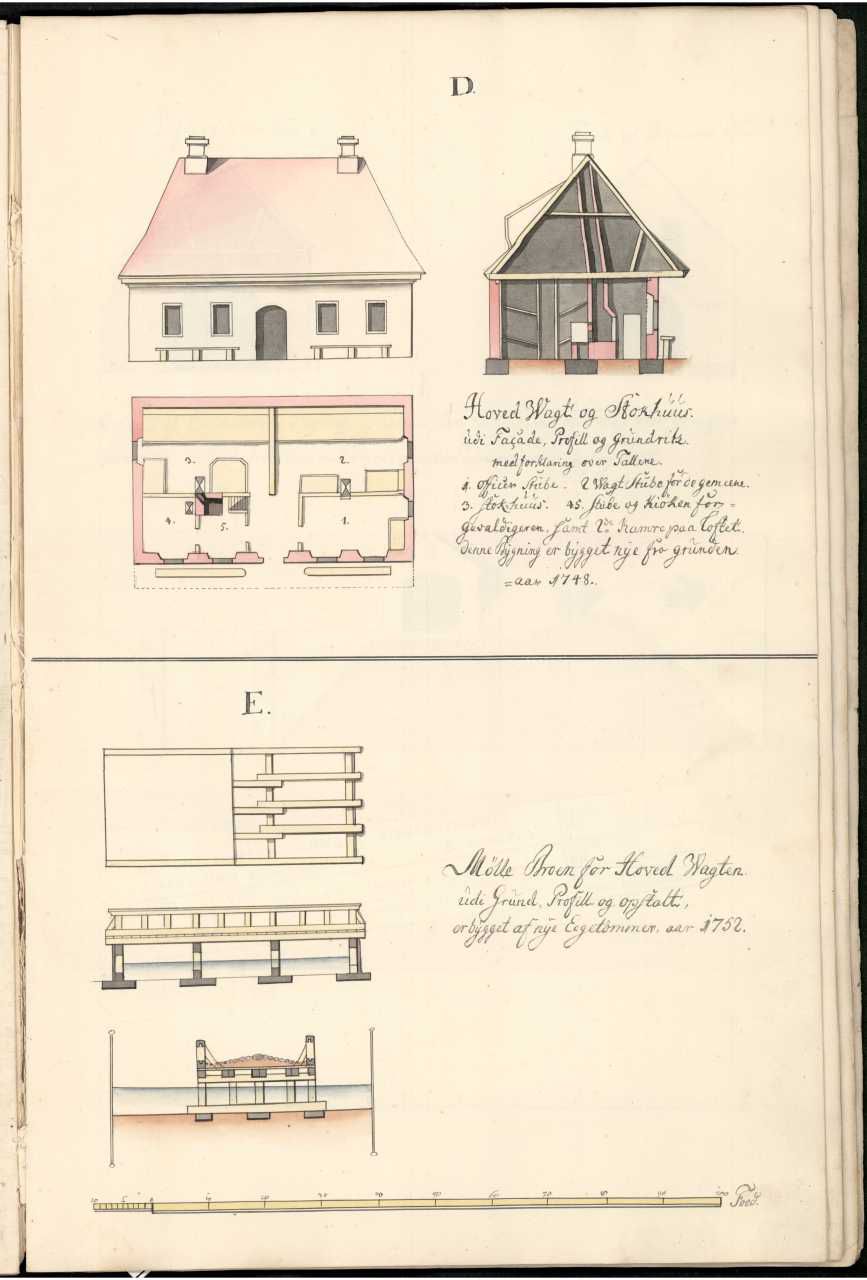 D.
Hoved Wagt og Stokhüüs.
udi Façade, Profill og Grundrits
med forklaring over Tallene.
1. officier Stübe. 2 Wagt Stübe for de gemeene.
3. Stokhüüs. 45. Stübe og Kiöken for=
gevaldigeren, samt 2de Kamre paa Loftet.
Denne Bygning er bygget nye fra grunden
=aar 1748.
3. 2.
4. 5. 1.
E.
Mölle Broen for Hoved Wagten
udi Grund, Profill og opstalt,
er bygget af nye Eegetömmer, aar 1752.
10 5 0 10 20 30 40 50 60 70 80 90 100 Food.